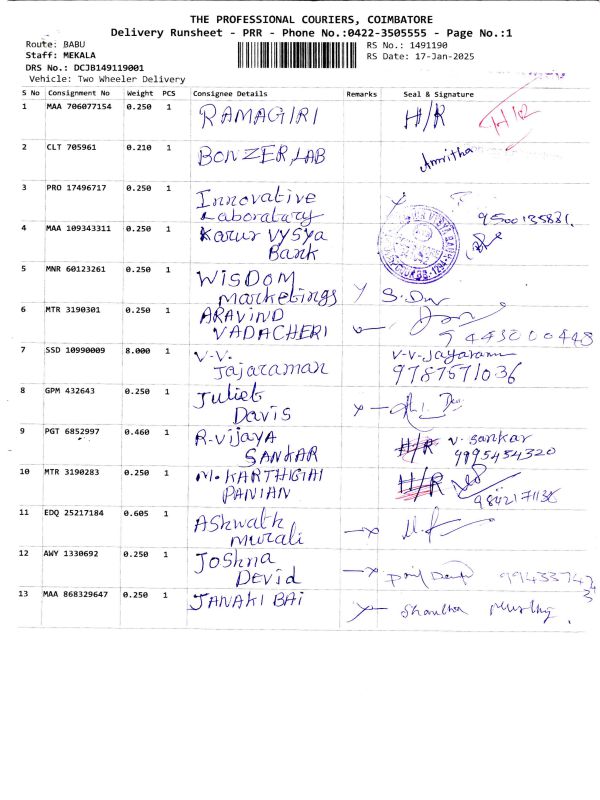 THE PROFESSIONAL COURIERS, COIMBATORE
Delivery Runsheet - PRR - Phone No.:0422-3505555 - Page No.:1
Route: BABU
RS No.: 1491190
Staff: MEKALA
RS Date: 17-Jan-2025
DRS No.: DCJB149119001
Vehicle: Two Wheeler Delivery
S No Consignment No Weight PCS Consignee Details Remarks Seal & Signature
1 MAA 706077154 0.250 1 RAMAGIRI H/R H/R
2 CLT 705961 0.210 1 BONZER LAB Amritha
3 PRO 17496717 0.250 1 Innovative
Laboratary 9500135881
4 MAA 109343311 0.250 1 Karur VYSYA
Bank
5 MNR 60123261 0.250 1 WISDOM
Marketings S.D
6 MTR 3190301 0.250 1 ARAVIND
VADACHERI 9443200448
7 SSD 10990009 8.000 1 V.V. V-V-Jayaram
Jajaraman 9787571036
8 GPM 432643 0.250 1 Juliet
Davis
9 PGT 6852997 0.460 1 R-Vijaya H/R V. Sankar
SANKAR 9995454320
10 MTR 3190283 0.250 1 M.KARTHIGAI H/R
PANIAN 9842171138
11 EDQ 25217184 0.605 1 Ashwath
Murali
12 AWY 1330692 0.250 1 Joshna
Devid 994337473
13 MAA 868329647 0.250 1 JANAKI BAI Shantha Murthy